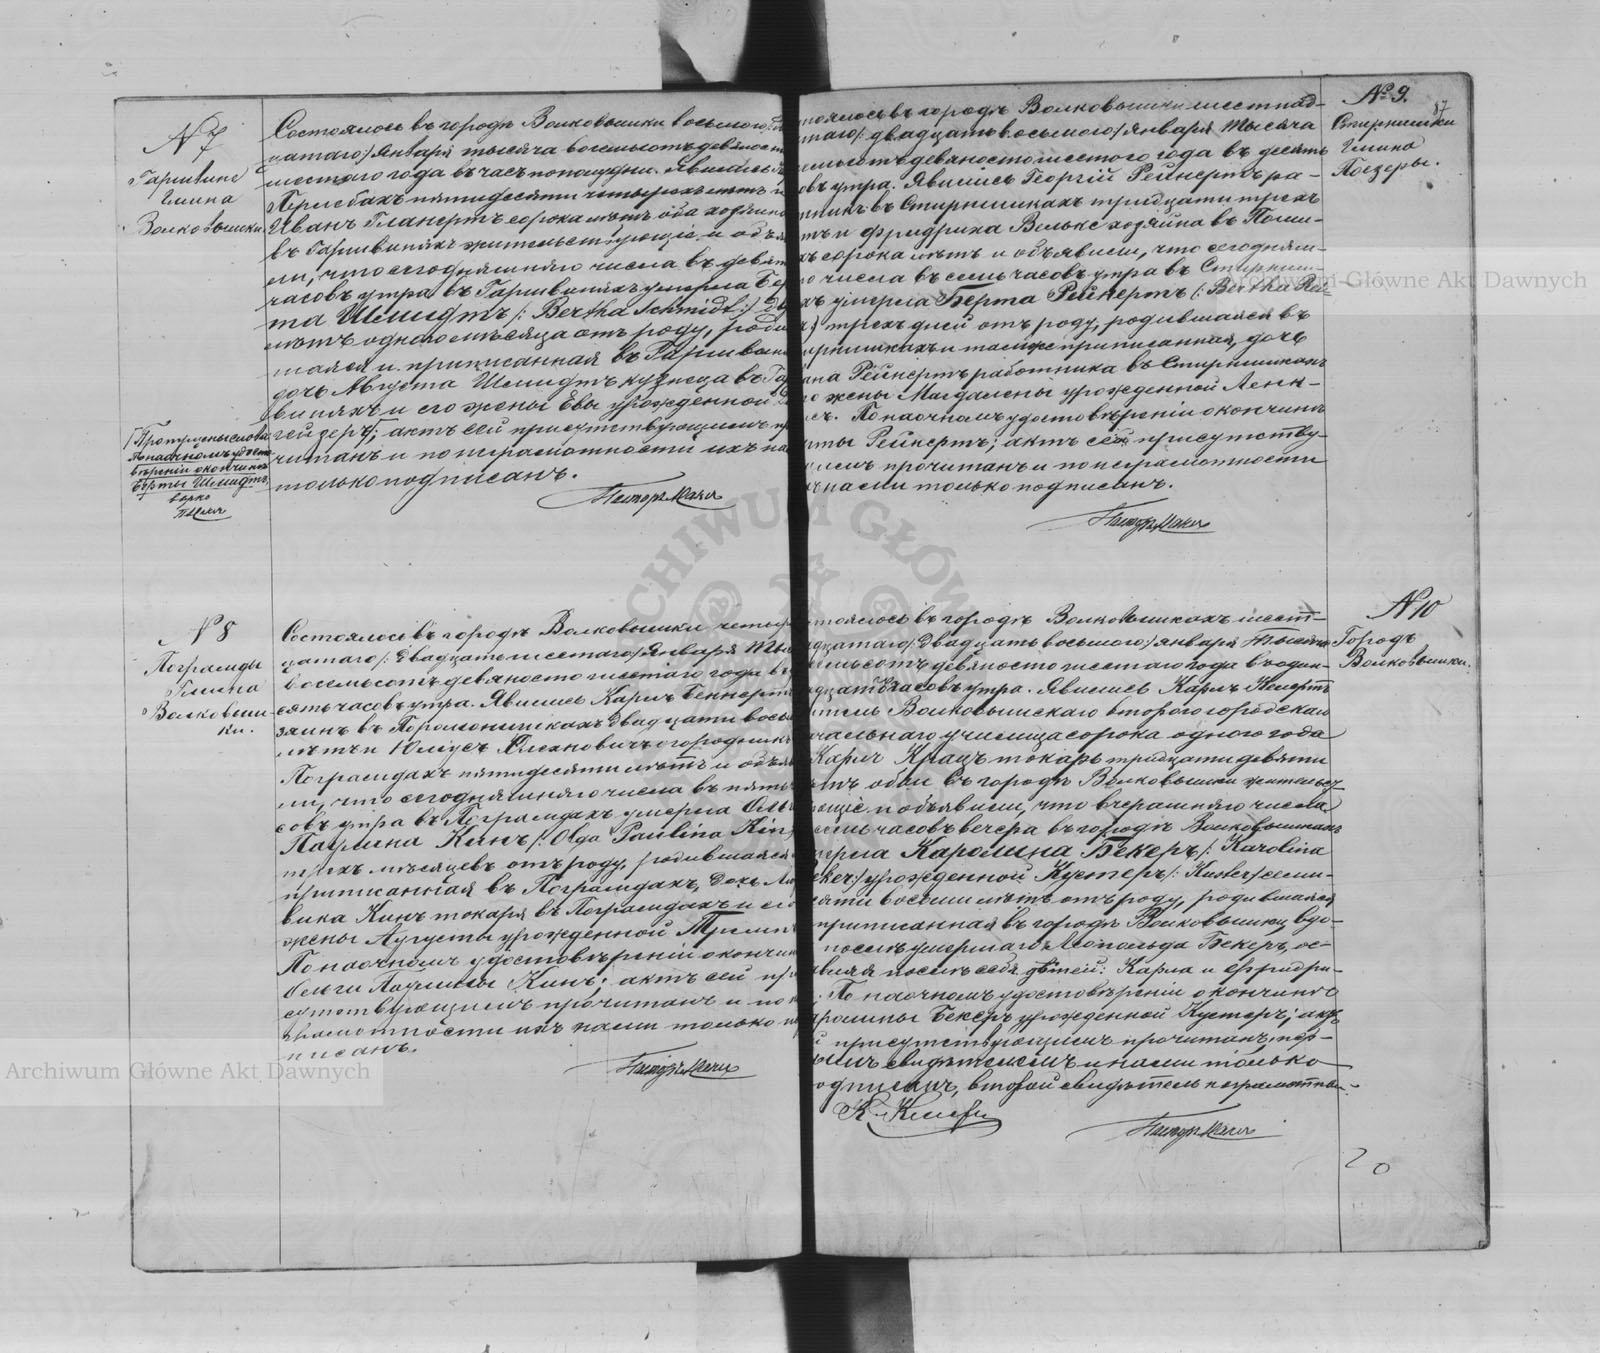 № 7
Гаршвине
Гмина
Волковышки
Состоялось въ городѣ Волковышки восьмого
цатаго) Января тысяча восемьсотъ девяносто
шестаго года въ часъ пополудни. Явились
пятидесяти четырехъ лѣтъ и
Иванъ Планертъ сорока лѣтъ оба хозяина
въ Гаршвиняхъ жительствующіе и объя
ли, что сегодняшняго числа въ девять
часовъ утра въ Гаршвиняхъ умерла Бер
та Шмидтъ /: Bertha Schmidt :/ 
лѣтъ одного мѣсяца отъ роду, роди
шаяся и приписанная въ Гаршвиня
дочь Августа Шмидтъ кузнеца въ Гар
виняхъ и его жены Евы урожденной
гейзеръ; актъ сей присутствующимъ про
читанъ и по неграмотности ихъ на
только подписанъ.
Пасторъ
/Пропущены слова
По наочномъ удосто
вѣреніи о кончинѣ
Берты Шмидтъ,
вѣрно
№ 8
Пограмды
Гмина
Волковыш
ки.
Состоялось въ городѣ Волковышки четыр
цатаго /: Двадцать шестаго/ Января Тыс
восемьсотъ девяносто шестаго года въ
сять часовъ утра. Явились Карлъ Беннертъ
зяинъ въ двадцати вось
лѣтъ и Юліусъ огородникъ
Пограмдахъ пятидесяти лѣтъ и объя
ли, что сегодняшняго числа въ пять
совъ утра въ Пограмдахъ умерла Оль
Паулина Кинъ /: Olga Paulina Kin
трехъ мѣсяцевъ отъ роду, родившаяся
приписанная въ Пограмдахъ, дочь Лю
вика Кинъ токаря въ Пограмдахъ и его
жены Аугусты урожденной
По наочномъ удостовѣреніи о кончин
Ольги Паулины Кинъ; актъ сей при
сутствующимъ прочитанъ и по не
грамотности ихъ нами только по
писанъ.
Пасторъ
№ 9.
87
Стирнишки
Гмина
Поезеры.
тоялось въ городѣ Волковышки шестнад-
таго /: двадцать восьмого:/ Января Тысяча
емьсотъ девяносто шестого года въ десять
овъ утра. Явились Георгій Рейнертъ ра-
никъ въ Стирнишкахъ тридцати трехъ
тъ и Фридрихъ Вельке хозяинъ въ
хъ сорока лѣтъ и объявили, что сегодняш-
о числа въ семь часовъ утра въ Стирниш-
хъ умерла Берта Рейнертъ /: Bertha Rei-
:/ трехъ дней отъ роду, родившаяся въ
ирнишкахъ и тамъ же приписанная, дочь
ана Рейнертъ работника въ Стирнишкахъ
о жены Магдалены урожденной Ленк-
По наочномъ удостовѣреніи о кончинѣ
рты Рейнертъ; актъ сей присутству-
имъ прочитанъ и по неграмотности
хъ нами только подписанъ.
Пасторъ
№ 10
Городъ
Волковышки.
тоялось въ городѣ Волковышкахъ шест-
дцатаго /: Двадцать восьмого:/ Января Тысяча
емьсотъ девяносто шестаго года въ один-
адцать часовъ утра. Явились Карлъ
итель Волковышскаго второго городскаго
чальнаго училища сорока одного года
Карлъ Крацъ токарь тридцати девяти
тъ оба въ городѣ Волковышки жительст-
ующіе и объявили, что вчерашняго числа
семь часовъ вечера въ городѣ Волковышкахъ
мерла Каролина Бекеръ /: Karolina
eker:/ урожденной Кустеръ /: Kuster:/ семи-
сяти восьми лѣтъ отъ роду, родившаяся
приписанная въ городѣ Волковышки, вдо-
послѣ умершаго Леопольда Бекеръ, ос-
авляя послѣ себя дѣтей: Карла и Фридри-
По наочномъ удостовѣреніи о кончинѣ
аролины Бекеръ урожденной Кустеръ; актъ
й присутствующимъ прочитанъ, пер-
ымъ свидѣтелемъ и нами только
одписанъ, второй свидѣтель неграмотны.
Пасторъ
20
Archiwum Główne Akt Dawnych
Archiwum Główne Akt Dawnych